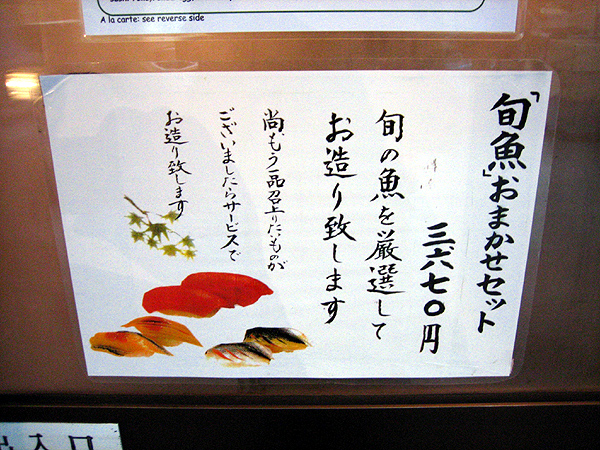 A la carte: see reverse side
「旬魚」おまかせセット
三、六七〇円
旬の魚を厳選して
お造り致します
尚、もう一品召上りたいものが
ございましたらサービスで
お造り致します
入口